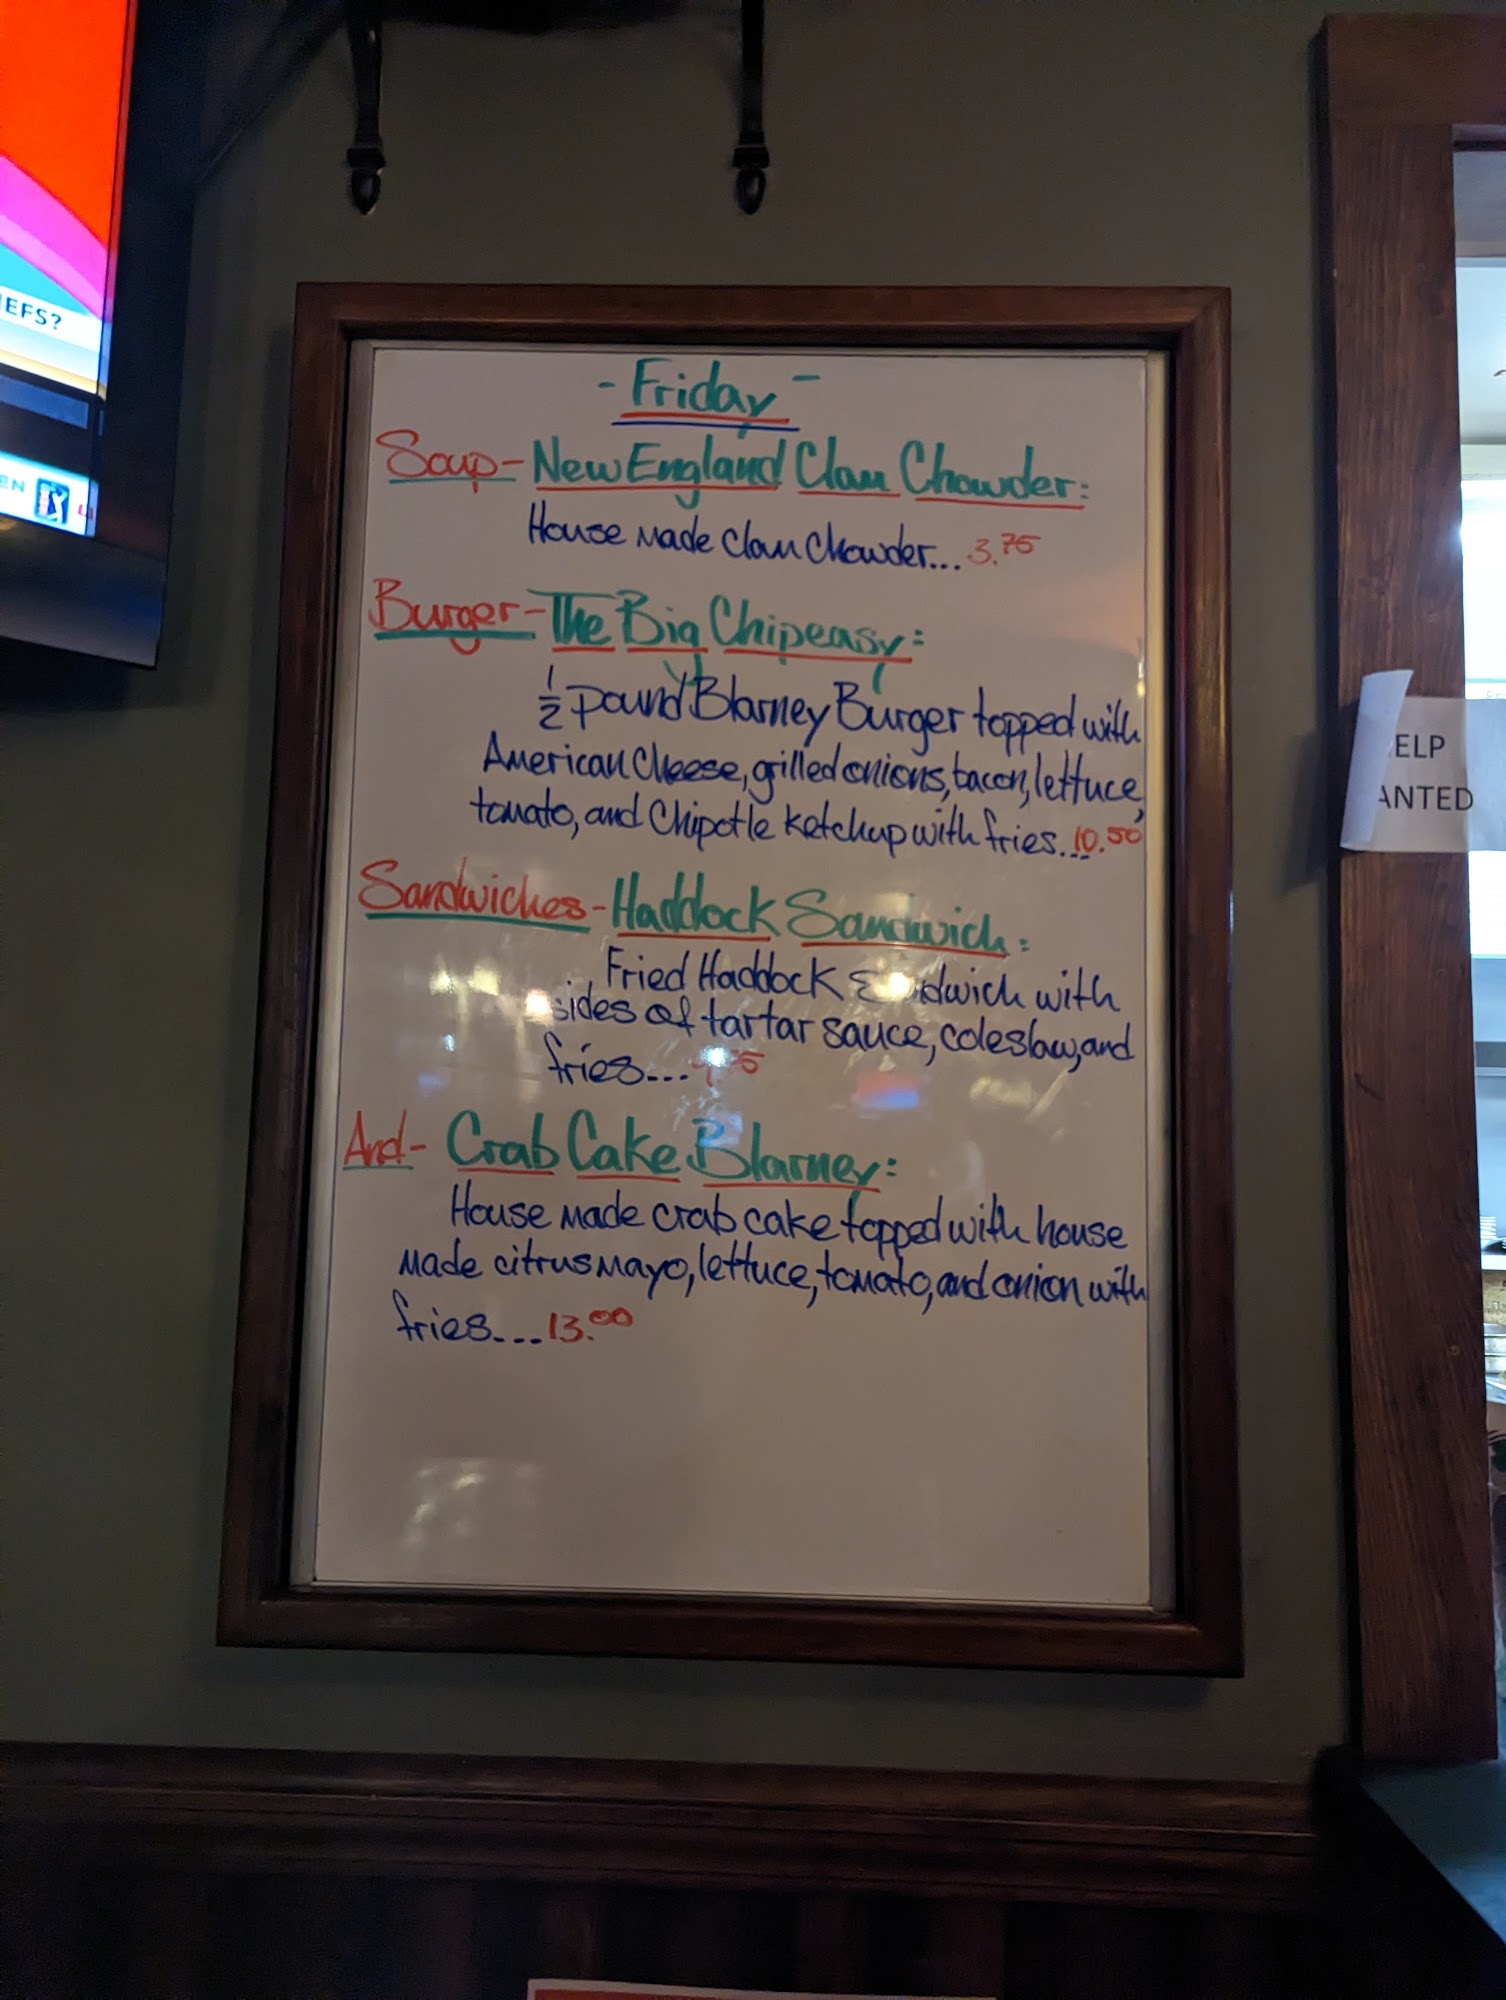 IEFS?
EN
- Friday -
Soup - New England Clam Chowder:
House made clam chowder... 3.75
Burger - The Big Chipeasy:
1/2 pound Blarney Burger topped with
American Cheese, grilled onions, bacon, lettuce,
tomato, and Chipotle ketchup with fries... 10.50
Sandwiches - Haddock Sandwich:
Fried Haddock with
sides of tartar sauce, coleslaw, and
fries...
And - Crab Cake Blarney:
House made crab cake topped with house
made citrus mayo, lettuce, tomato, and onion with
fries... 13.00
ELP
ANTED